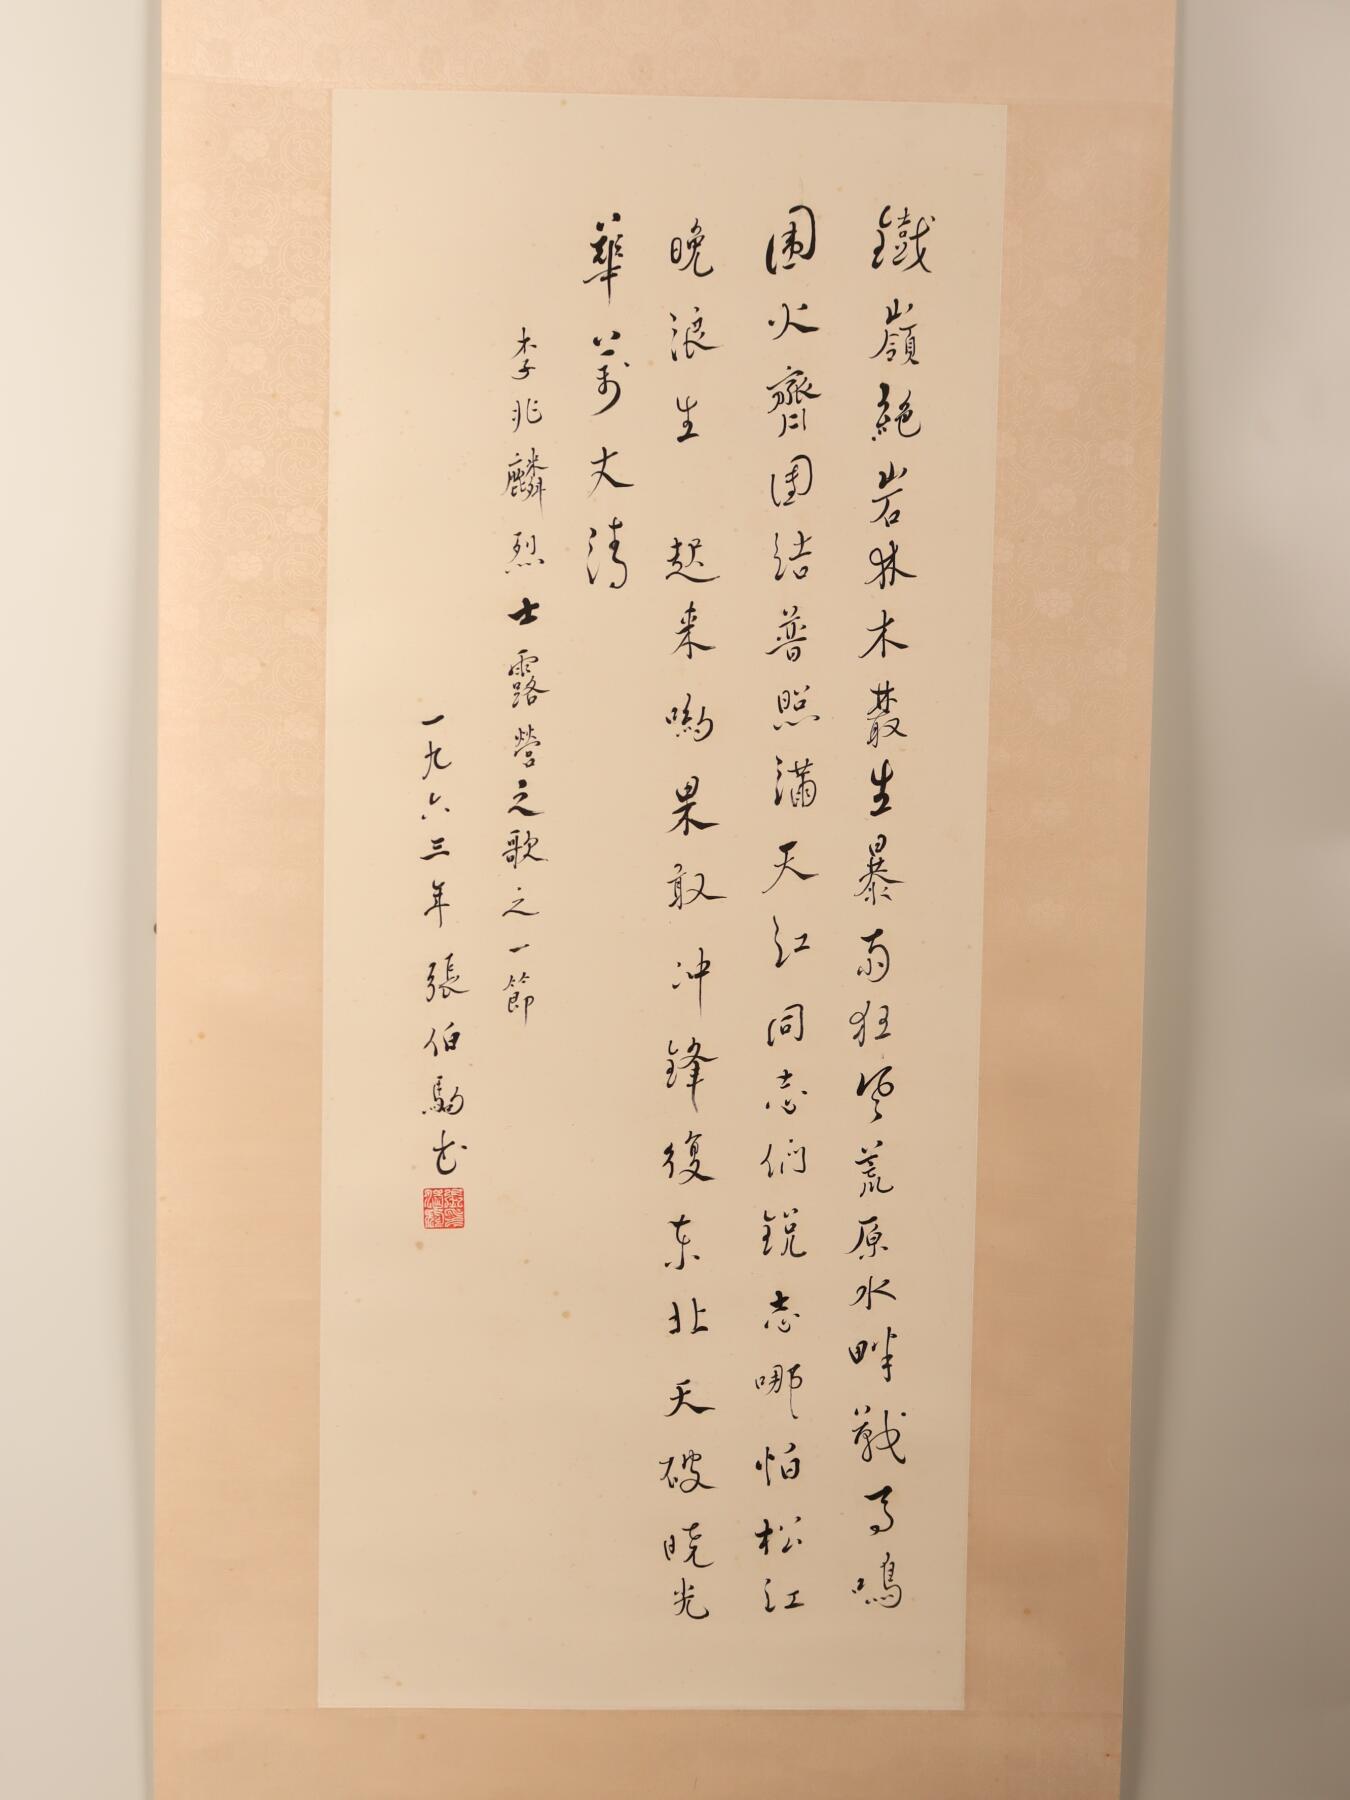 鐵嶺絕岩林木叢生暴雨狂風荒原水畔戰馬鳴
圍火齊團結普照滿天紅同志們銳志哪怕松江
晚浪生 起来喲果敢冲鋒復東北天破曉光
華萬丈濤
李兆麟烈士露營之歌之一節
一九六三年張伯駒書